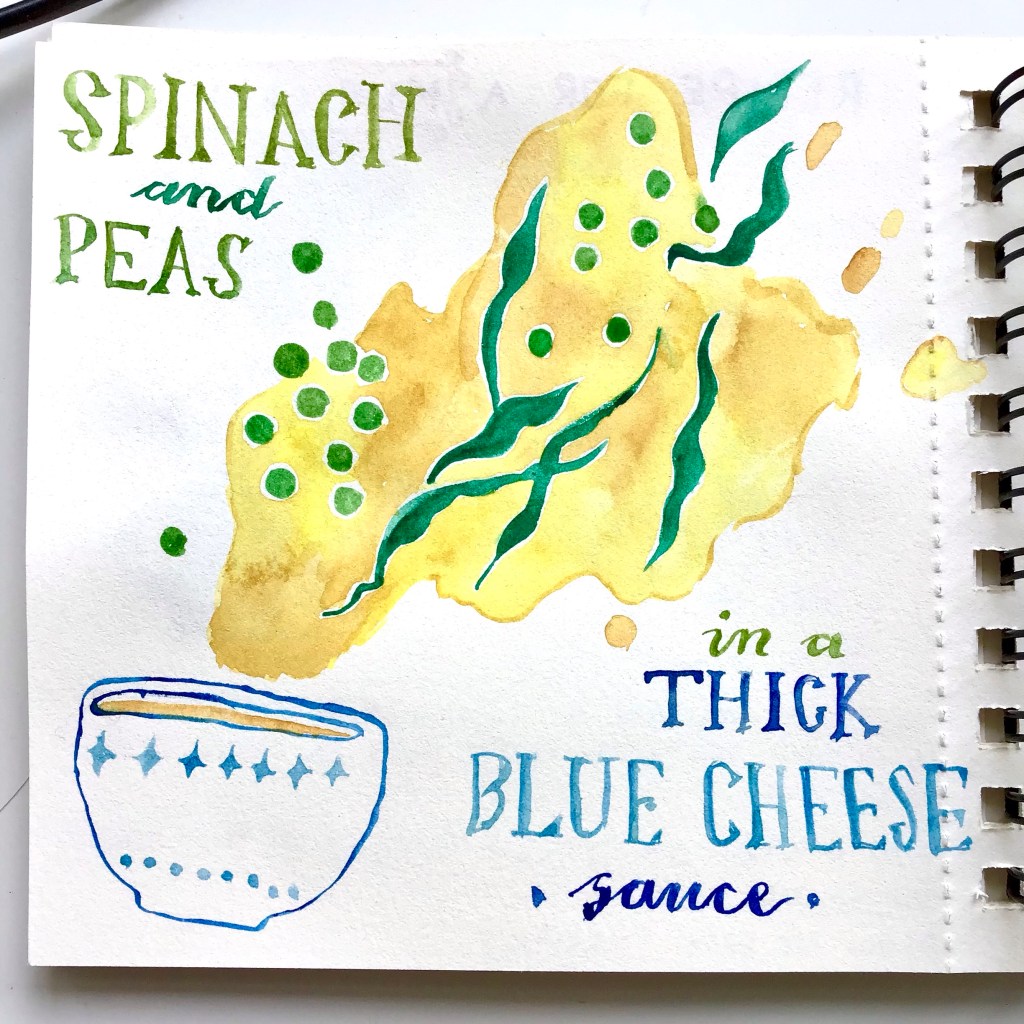 SPINACH
and
PEAS
in a
THICK
BLUE CHEESE
sauce